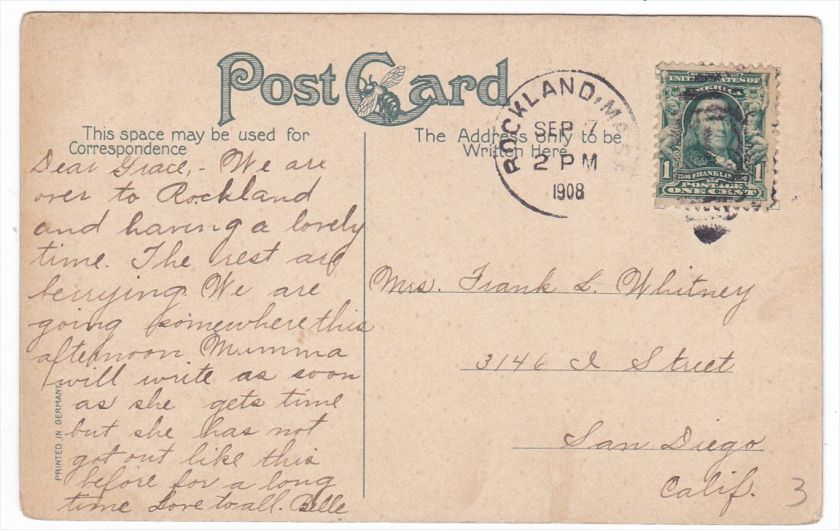 Post Card
This space may be used for
Correspondence
The Address only to be
Written Here
ROCKLAND,
SEP 7
2 PM
1908
UNITED STATES OF
AMERICA
1 FRANKLIN 1
POSTAGE
ONE CENT
Dear Grace, - We are
over to Rockland
and having a lovely
time. The rest are
berrying. We are
going somewhere this
afternoon Mumma
will write as soon
as she gets time
but she has not
got out like this
before for a long
time Love to all. Belle
Mrs. Frank L. Whitney
3146 I Street
San Diego
Calif.
3
PRINTED IN GERMANY